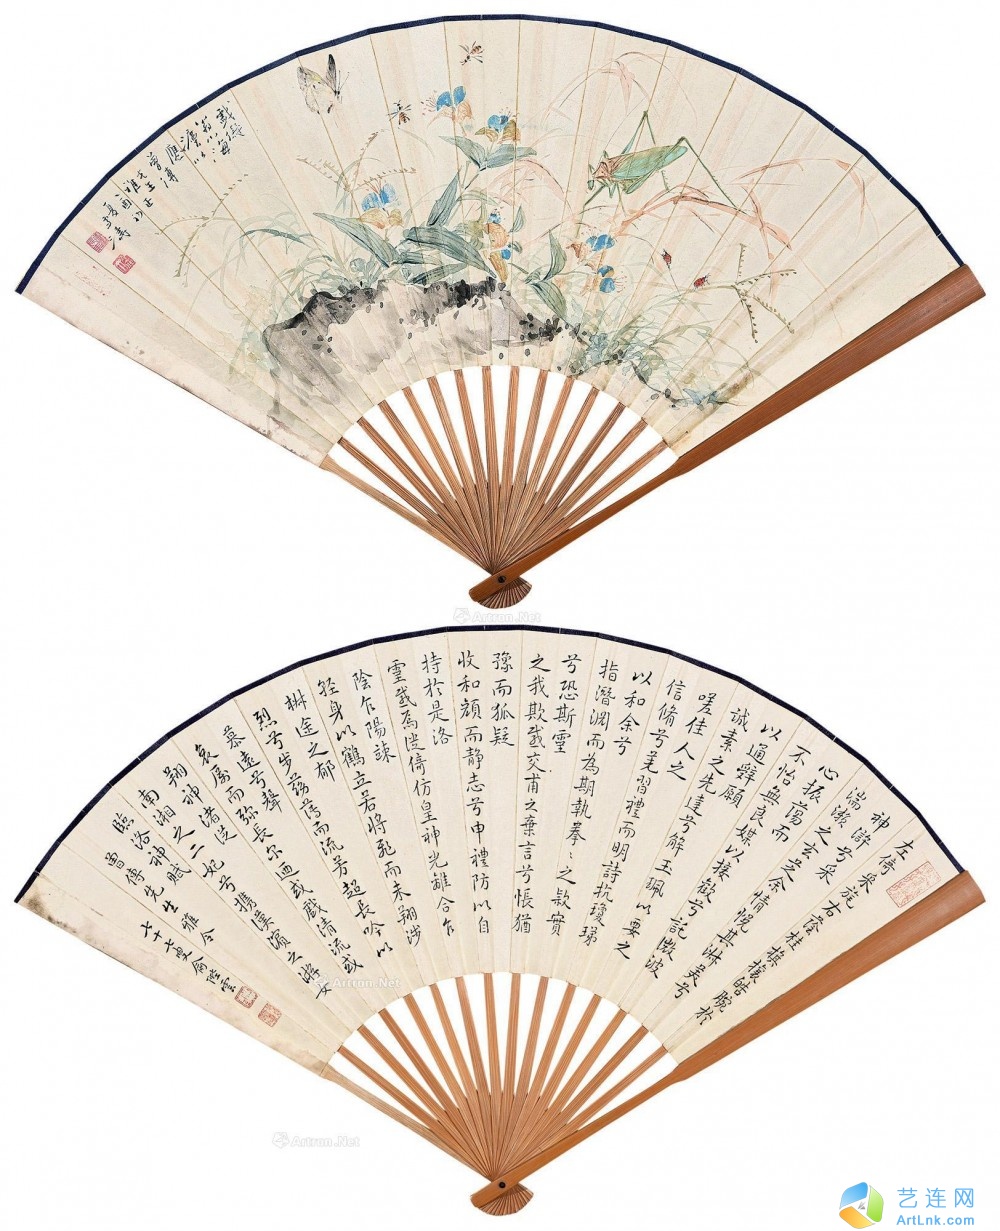 戲學
翁小海
左倚采旄右蔭桂旗攘皓腕於
神滸兮采
湍瀨之玄芝余情悅其淋美兮
心振蕩而
不怡無良媒以接歡兮託微波
以通辭願
誠素之先達兮解玉珮以要之
嗟佳人之
信脩兮羌習禮而明詩抗瓊珶
以和余兮
指潛淵而為期執拳〻之款實
兮恐斯靈
之我欺感交甫之棄言兮悵猶
豫而狐疑
收和顏而靜志兮申禮防以自
持於是洛
靈感焉徙倚仿皇神光離合乍
陰乍陽竦
輕身以鶴立若將飛而未翔涉
椒途之郁
烈兮步蘅薄而流芳超長吟以
慕遠兮聲
哀厲而弥長尔迺或戲清流或
翔神渚從
南湘之二妃兮攜漢濱之游女
臨洛神賦
曾傅先生雅令
七十七叟俞陛雲
Artron.Net
Artron.Net
Artron.Net
艺连网
ArtLnk.com